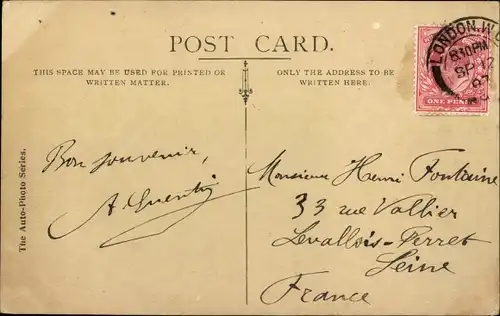 POST CARD.
THIS SPACE MAY BE USED FOR PRINTED OR
WRITTEN MATTER.
ONLY THE ADDRESS TO BE
WRITTEN HERE.
LONDON. W.C
8.30PM
SP 17
07
ONE PENNY
The Auto-Photo Series.
Bon souvenir,
A Quentin
Monsieur Henri Fontaine
33 rue Vallier
Levallois-Perret
Seine
France